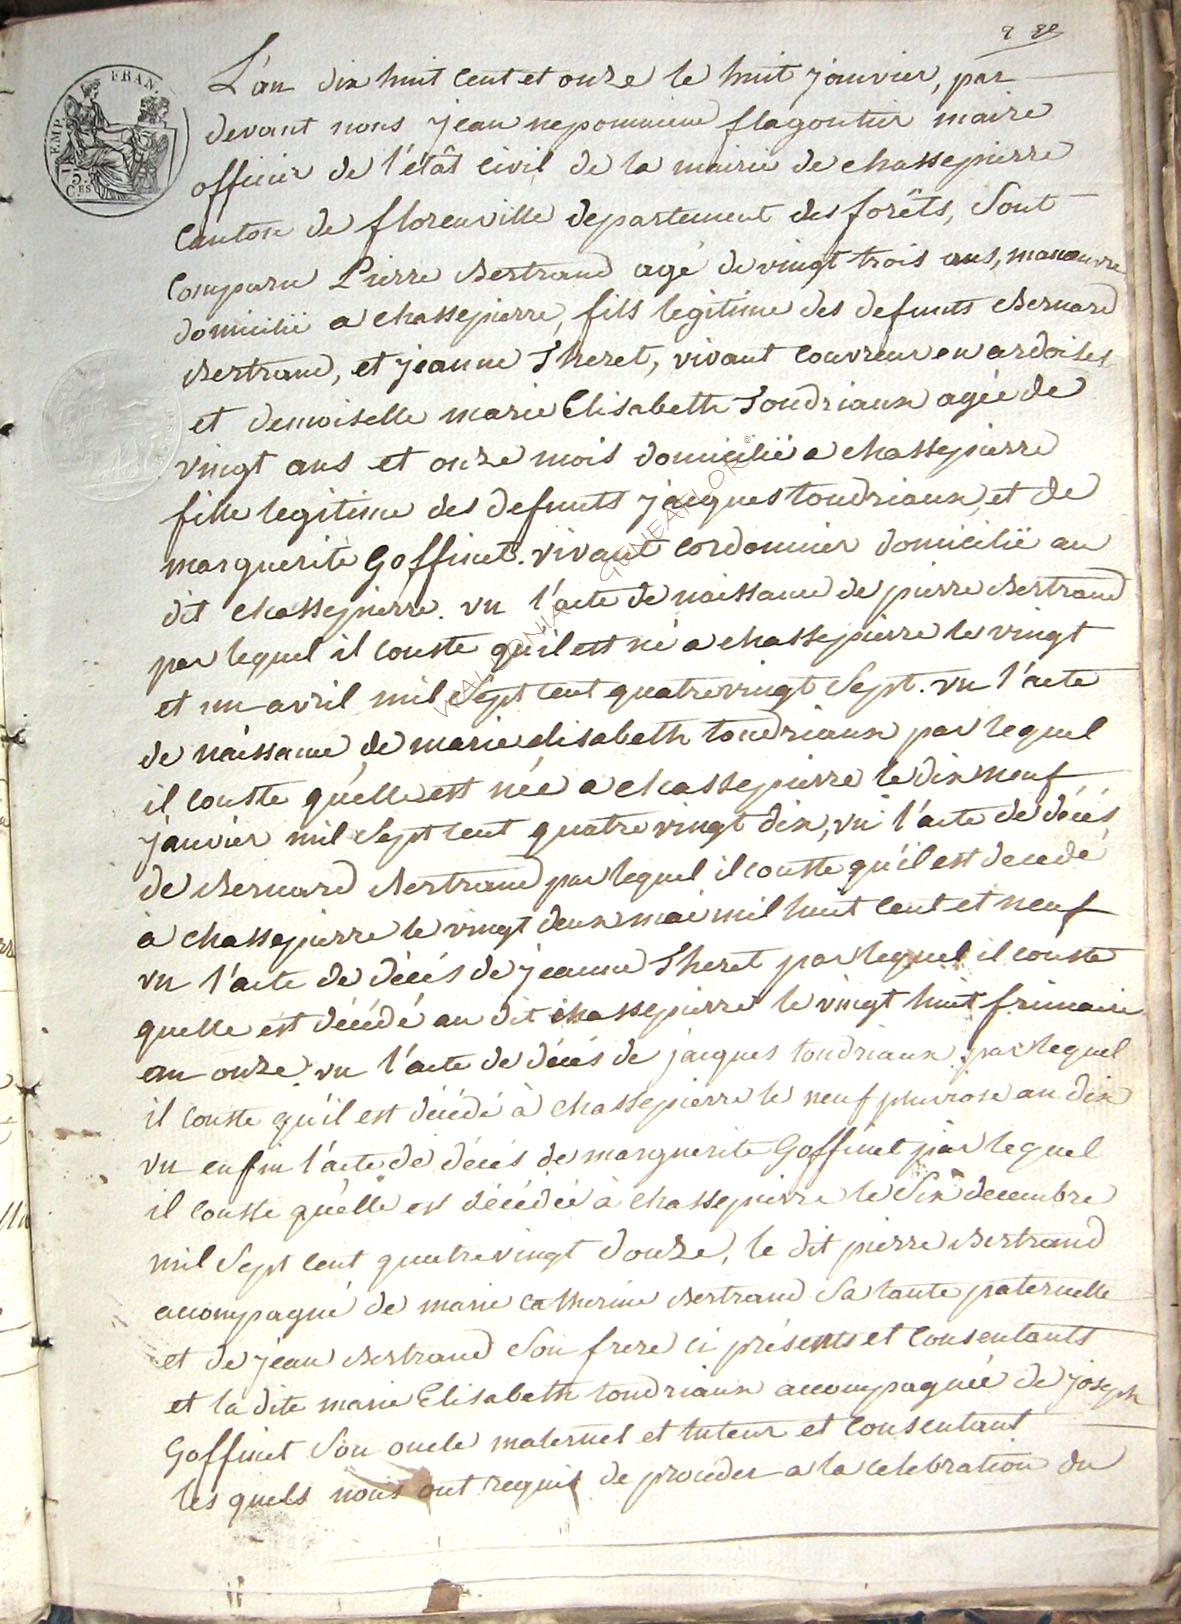 L'an dix huit cent et onze le huit janvier, par
devant nous jean nepomucene flagontier maire
officier de l'étât civil de la mairie de chassepierre
Canton de florenville departement des forêts, sont
Comparu Pierre Bertrand agé de vingt trois ans, manoeuvre
domicilié a chassepierre, fils legitime des defunts Bernard
Bertrand, et jeanne Theret, vivant couvreur en ardoises
et demoiselle marie Elisabeth Tondriaux agée de
vingt ans et onze mois domicilié a chassepierre
fille legitime des defunts jacques tondriaux et de
marguerite Goffinet. vivant cordonnier domicilié au
dit chassepierre. vu l'acte de naissance de pierre Bertrand
par lequel il conste qu'il est né a chassepierre le vingt
et un avril mil sept cent quatre vingt sept. vu l'acte
de naissance de marie elisabeth tondriaux par lequel
il conste qu'elle est née a chassepierre le dix neuf
janvier mil sept cent quatre vingt dix, vu l'acte de décés
de Bernard Bertrand par lequel il conste qu'il est decedé
à chassepierre le vingt deux mai mil huit cent et neuf
vu l'acte de décés de jeanne Theret par lequel il conste
quelle est décédé au dit chassepierre le vingt huit frimaire
an onze vu l'acte de décés de jacques tondriaux par lequel
il conste qu'il est décédé à chassepierre le neuf pluviose an dix
vu enfin l'acte de décés de marguerite Goffinet par lequel
il conste qu'elle est décédée à chassepierre le six decembre
mil sept cent quatre vingt douze, le dit pierre Bertrand
accompagné de marie catherine Bertrand sa tante paternelle
et de jean Bertrand son frere ci présents et consentants
et la dite marie Elisabeth tondriaux accompagnée de joseph
Goffinet son oncle maternel et tuteur et consentant
les quels nous ont requis de proceder a la celebration du
EMP. FRAN.
75
C.ES
WALLONIA GENEAFLOR©